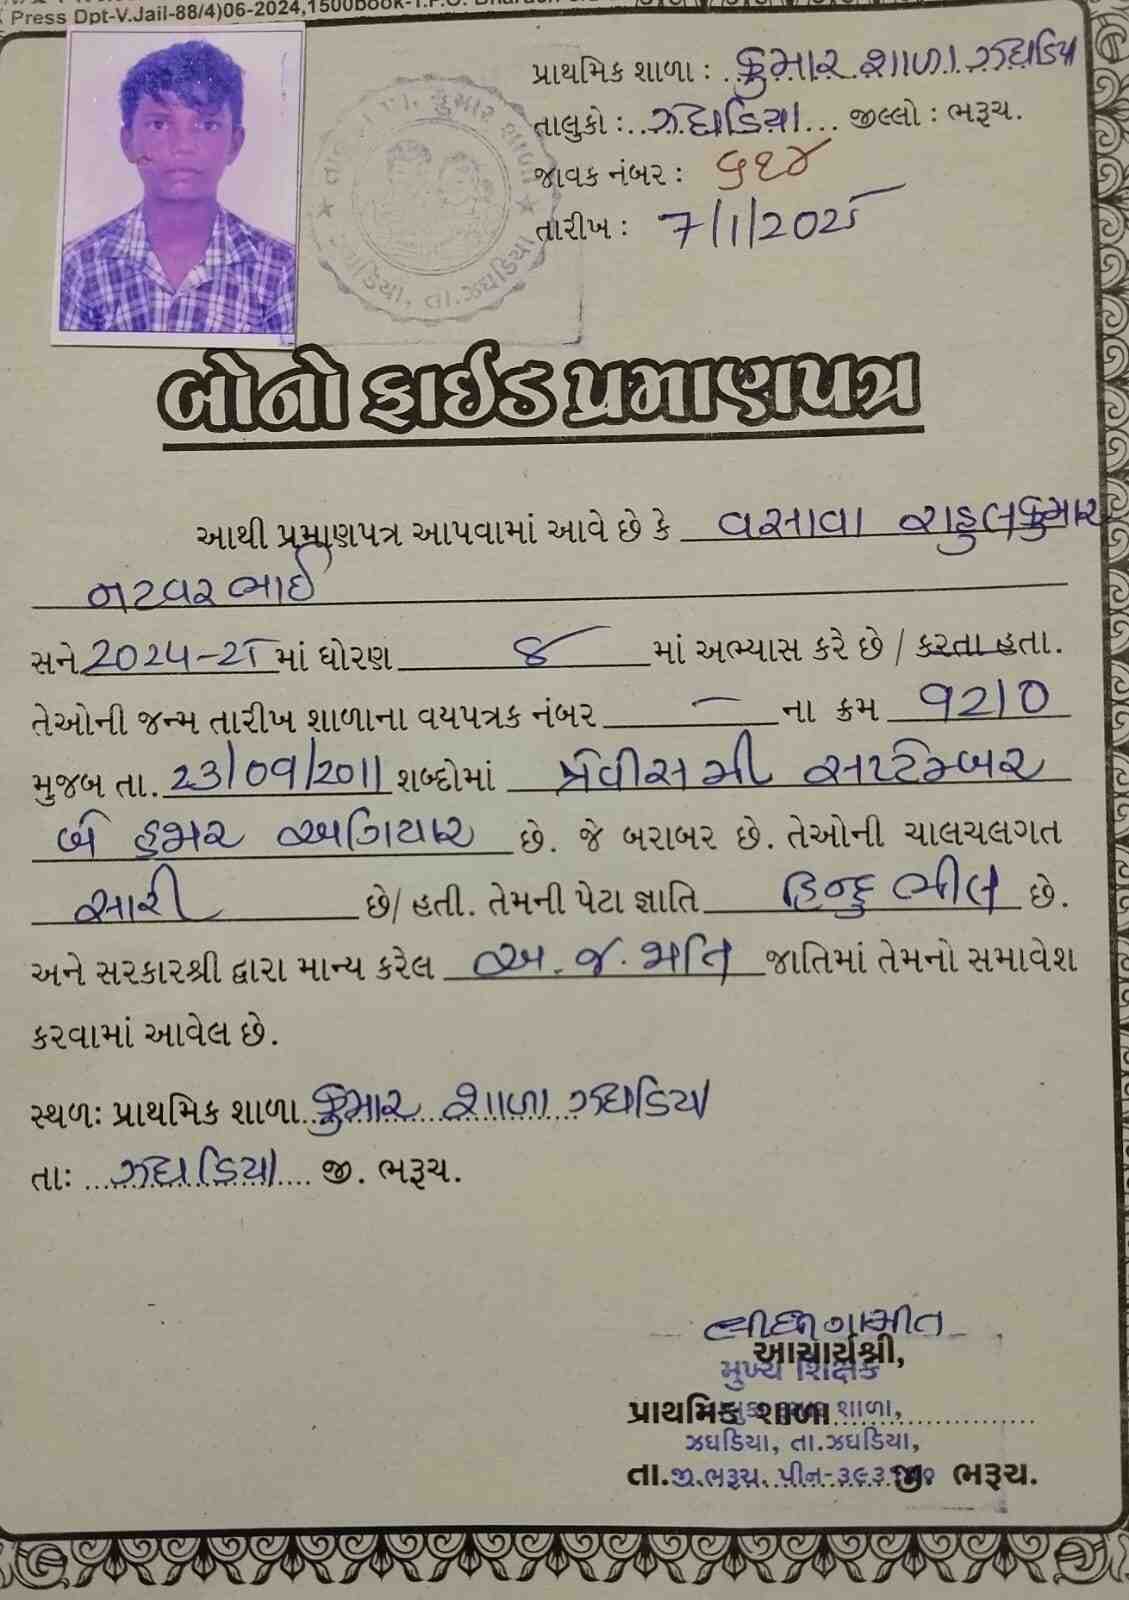 Press Dpt-V.Jail-88/4)06-2024,1500book-T.P.O.
પ્રાથમિક શાળા : કુમાર શાળા ઝઘડિયા
તાલુકો : ઝઘડિયા જીલ્લો : ભરૂચ.
જાવક નંબર : ૬૧૪
તારીખ : 7/1/2025
કુમાર શાળા
ઝઘડિયા, તા.ઝઘડિયા
બોનોફાઈડ પ્રમાણપત્ર
આથી પ્રમાણપત્ર આપવામાં આવે છે કે વસાવા રાહુલકુમાર
નટવરભાઈ
સને 2024-25 માં ધોરણ ૪ માં અભ્યાસ કરે છે / કરતા હતા.
તેઓની જન્મ તારીખ શાળાના વયપત્રક નંબર - ના ક્રમ 9210
મુજબ તા. 23/09/2011 શબ્દોમાં ત્રેવીસમી સપ્ટેમ્બર
બે હજાર અગિયાર છે. જે બરાબર છે. તેઓની ચાલચલગત
સારી છે/ હતી. તેમની પેટા જ્ઞાતિ હિન્દુ ભીલ છે.
અને સરકારશ્રી દ્વારા માન્ય કરેલ અ.જ.જાતિ જાતિમાં તેમનો સમાવેશ
કરવામાં આવેલ છે.
સ્થળ: પ્રાથમિક શાળા કુમાર શાળા ઝઘડિયા
તા: ઝઘડિયા જી. ભરૂચ.
આચાર્યશ્રી,
મુખ્ય શિક્ષક
પ્રાથમિક શાળા
શાળા,
ઝઘડિયા, તા.ઝઘડિયા,
તા. જી. ભરૂચ.
જી.ભરૂચ. પીન-૩૯૩૧૧૦